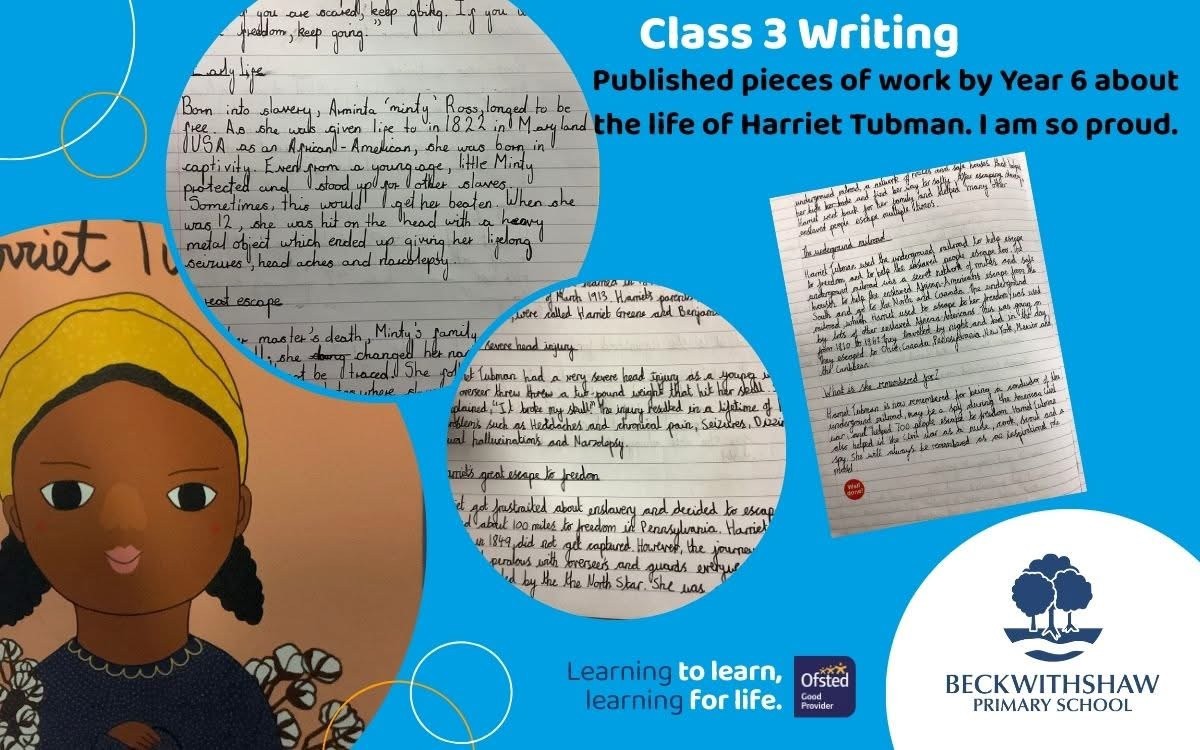 Class 3 Writing
Published pieces of work by Year 6 about
the life of Harriet Tubman. I am so proud.
you are scared, keep going. If you
freedom, keep going."
Early Life
Born into slavery, Araminta 'minty' Ross, longed to be
free. As she was given life to in 1822 in Maryland
USA as an African-American, she was born in
captivity. Even from a young age, little Minty
protected and stood up for other slaves.
Sometimes, this would get her beaten. When she
was 12, she was hit on the head with a heavy
metal object which ended up giving her lifelong
seizures, head aches and narcolepsy.
reat escape
master's death, Minty's family
she changed her na
not be traced. She
rriet Tu
of March 1913. Harriet's parents
were called Harriet Greene and Benjami
severe head injury
et Tubman had a very severe head injury as a younger
overseer threw threw a two-pound weight that hit her skull
plained, "It broke my skull" the injury resulted in a lifetime of
oblems such as Headaches and chronical pain, Seizures, Dizzi
ual hallucinations and Narcolepsy.
arriet's great escape to freedom
et got frustraited about enslavery and decided to escap
d about 100 miles to freedom in Pennsylvania. Harriet
in 1849, did not get captured. However, the journe
perolous with overseers and guards everyw
ed by the the North Star. She was
underground railroad, a network of routes and safe houses that helps
her and find her way to safty. After escaping slavery,
Harriet went back for her family and helped many other
enslaved people escape multiple times.
The underground railroad
Harriet Tubman used the underground railroad to help escape
to freedom and to help the enslaved people escape too. The
underground railroad was a secret network of routes and safe
houses to help the enslaved African-Americans escape from the
South and go to the North and Canada. The underground
railroad which Harriet used to escape to her freedom was used
by lots of other enslaved African-Americans. This was going on
from 1810 to 1861. They travelled by night and hid in the day.
They escaped to Ohio, Canada, Pennsylvania, New York, Mexico and
the Caribbean.
What is she remembered for?
Harriet Tubman is now remembered for being a conductor of the
underground railroad, may be a spy during the American Civil
war and helped 700 people escape to freedom. Harriet Tubman
also helped in the Civil war as a nurse, cook, scout and a
spy. She will always be remembered as an inspirational role
model.
Well done!
Learning to learn,
learning for life.
Ofsted
Good
Provider
BECKWITHSHAW
PRIMARY SCHOOL